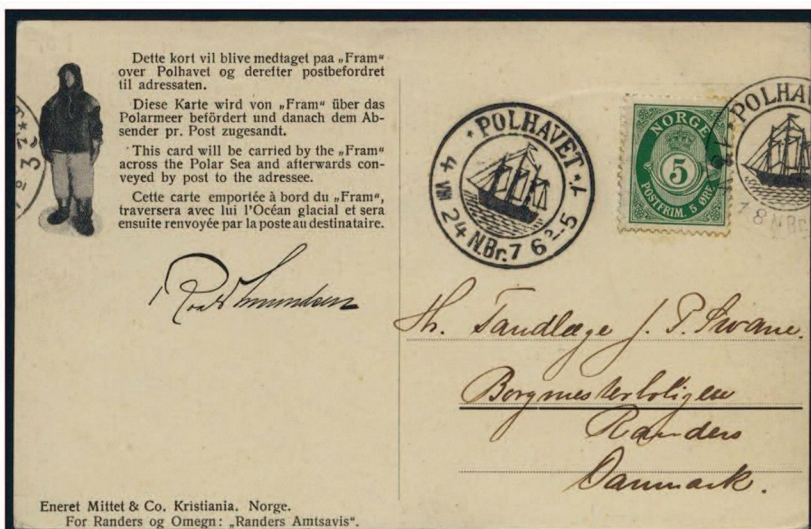 Dette kort vil blive medtaget paa „Fram“
over Polhavet og derefter postbefordret
til adressaten.
Diese Karte wird von „Fram“ über das
Polarmeer befördert und danach dem Ab-
sender pr. Post zugesandt.
This card will be carried by the „Fram“
across the Polar Sea and afterwards con-
veyed by post to the adressee.
Cette carte emportée à bord du „Fram“,
traversera avec lui l'Océan glacial et sera
ensuite renvoyée par la poste au destinataire.
Roald Amundsen
POLHAVET
4 VIII 24 N.Br. 76
NORGE
5
POSTFRIM. 5 ØRE
POLHAV
Hr. Tandlæge J. P. Swane.
Borgmesterboligen
Randers
Danmark.
Eneret Mittet & Co. Kristiania. Norge.
For Randers og Omegn: „Randers Amtsavis“.